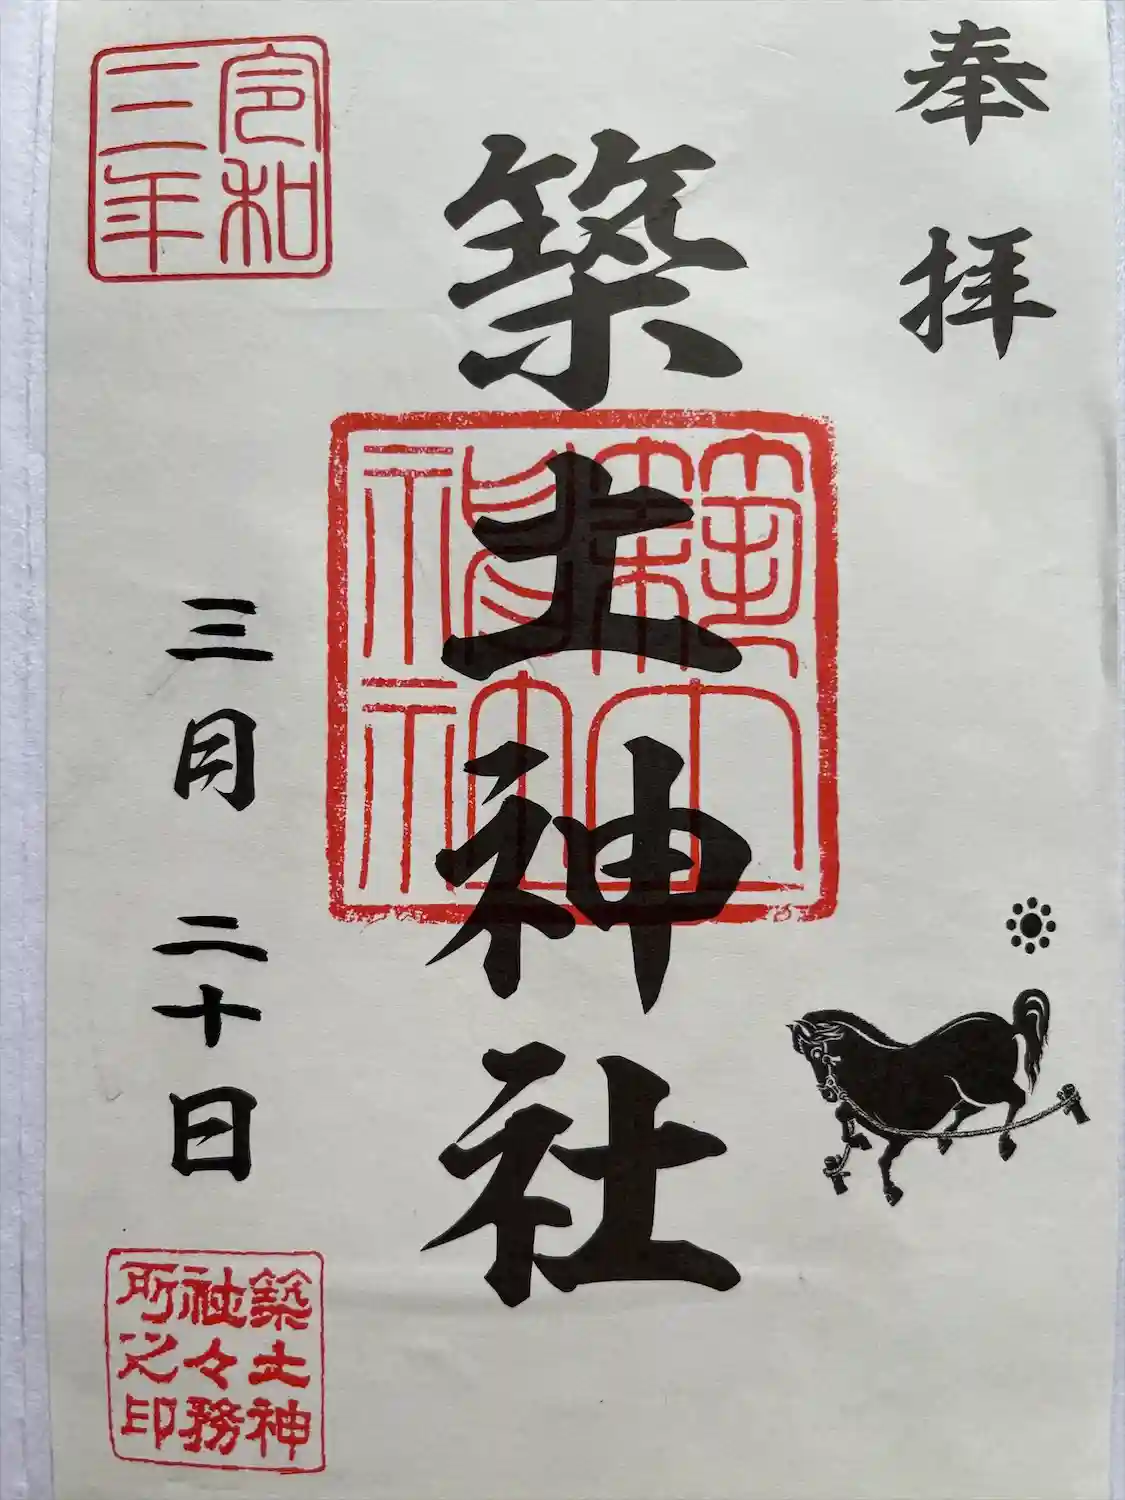 奉拝
築土神社
令和三年
三月二十日
築土神
社々務
所之印